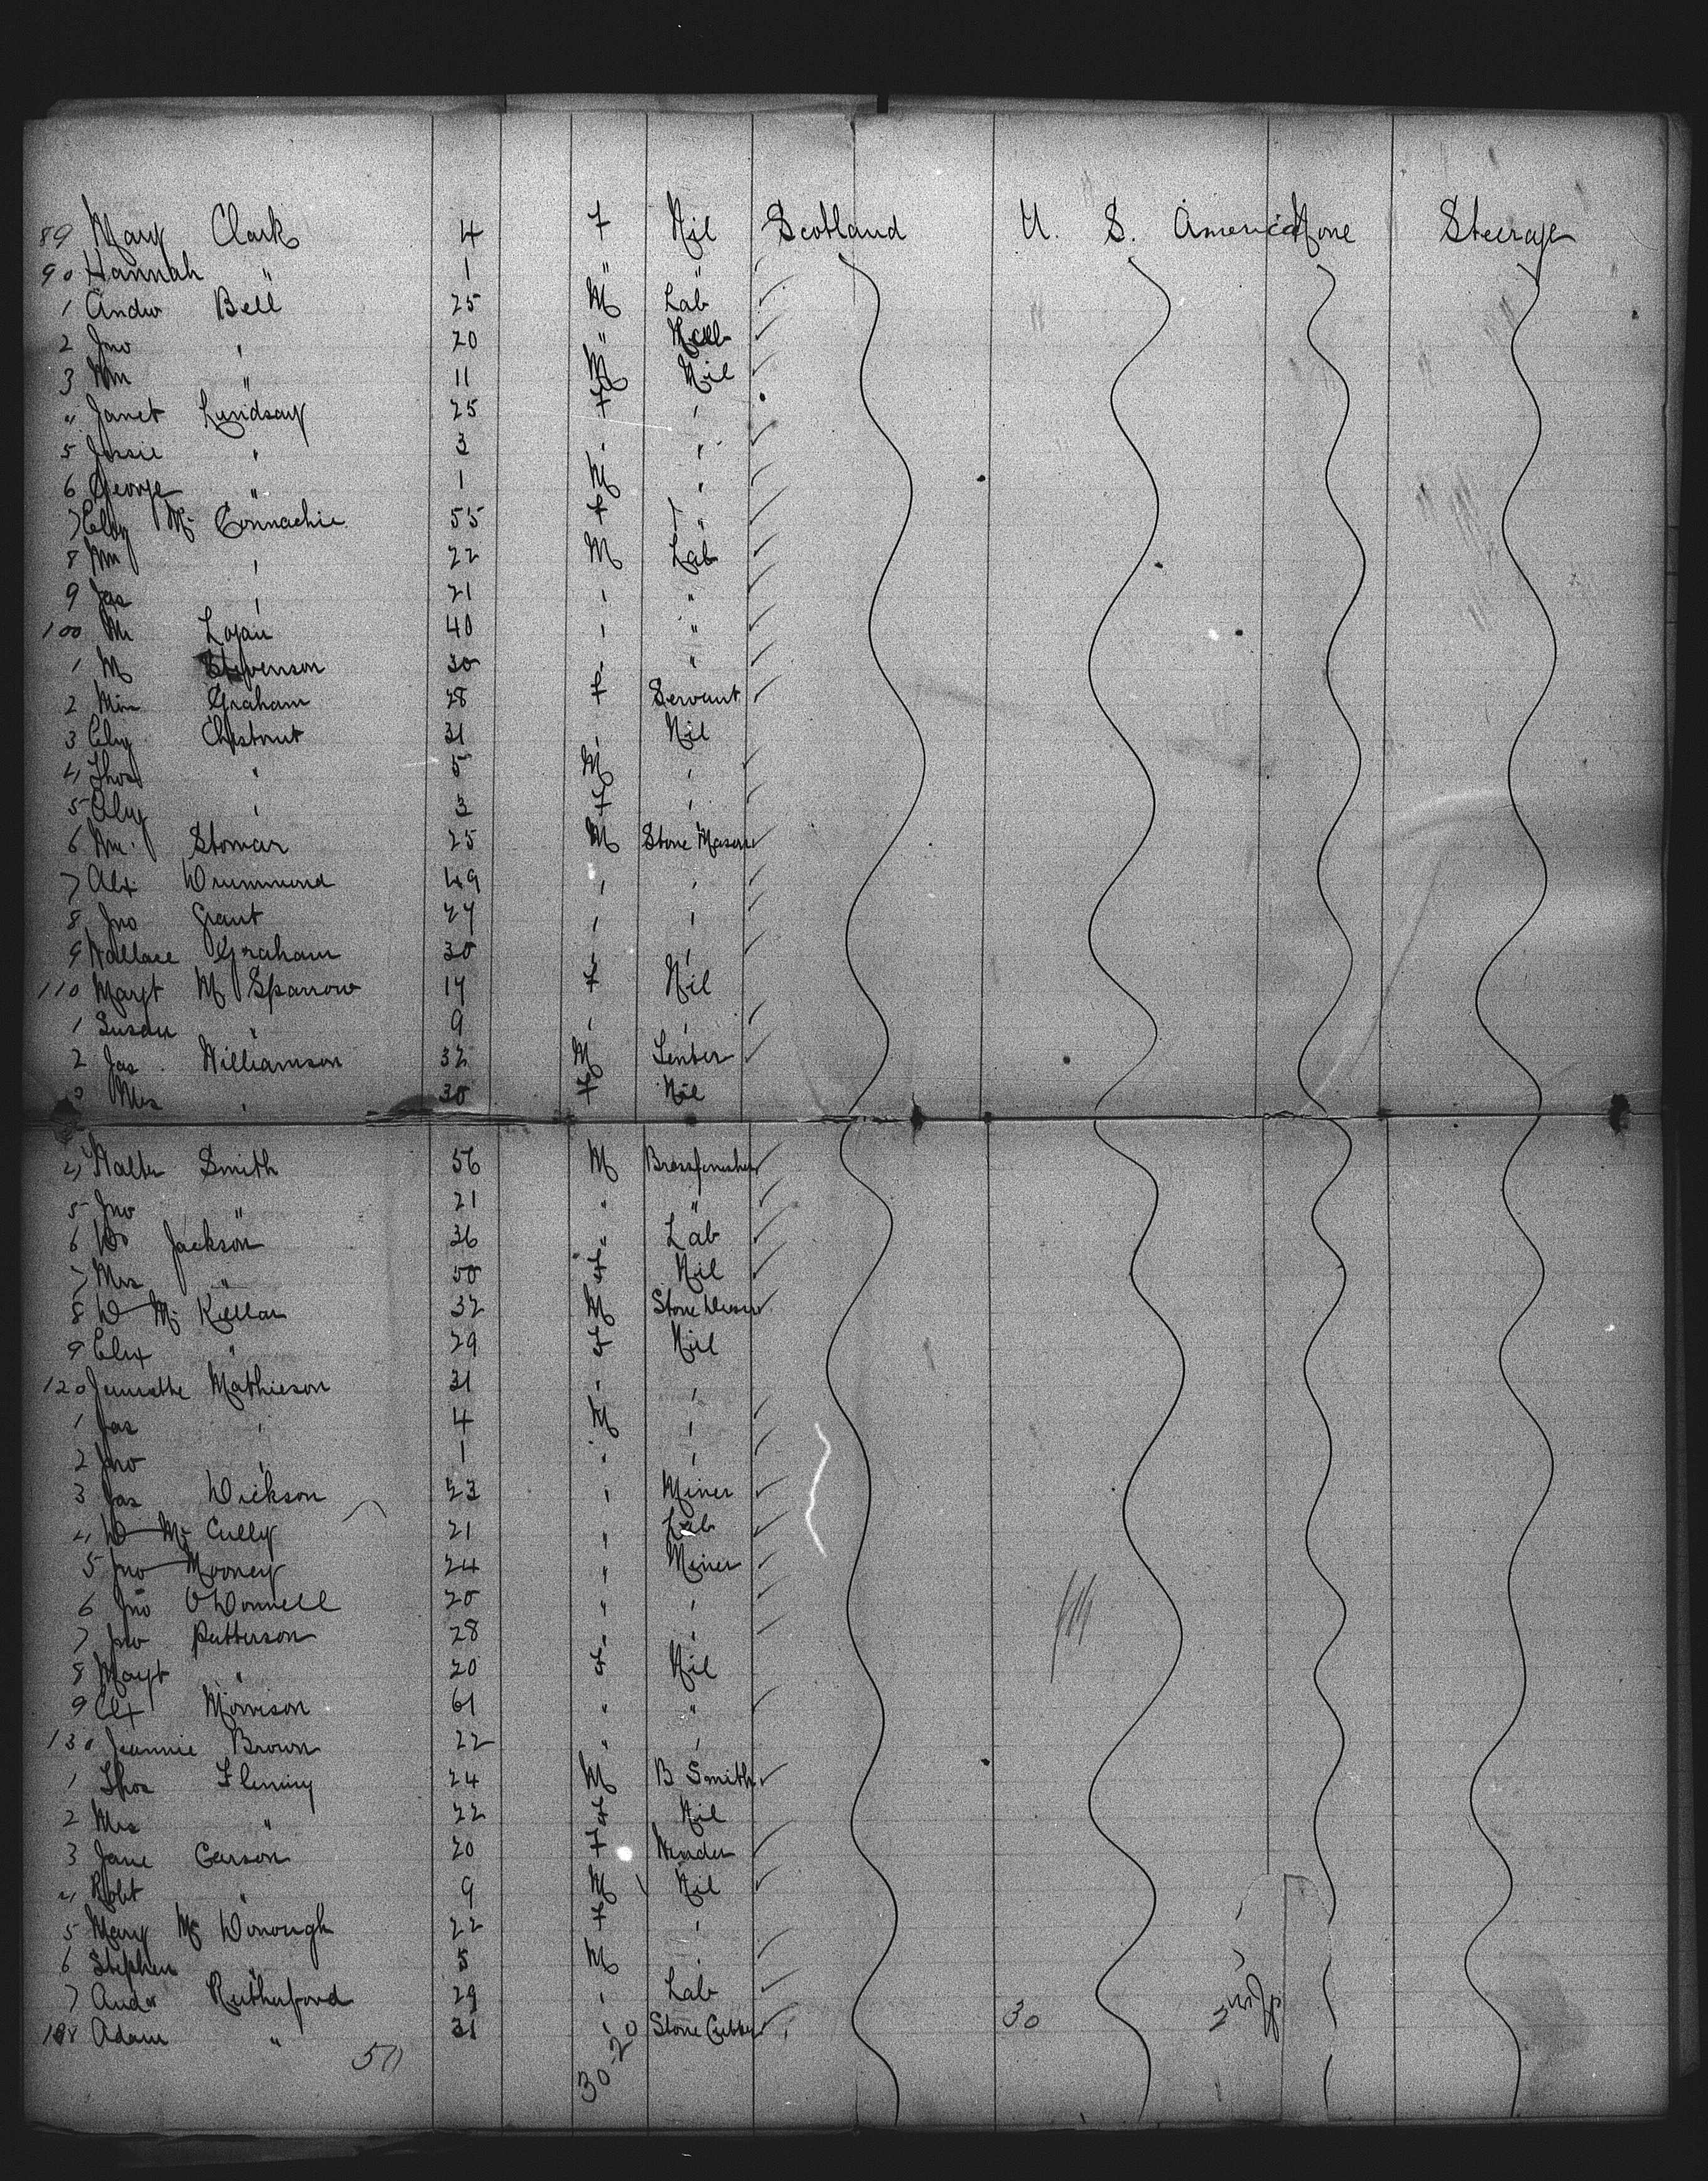 89 Mary Clark 4 F Nil Scotland U. S. America None Steerage
90 Hannah " 1 " "
1 Andw Bell 25 M Lab
2 Jno " 20 "
3 Wm " 11 M Nil
4 Janet Lindsay 25 F "
5 Jessie " 3 " "
6 George " 1 M "
7 Elizy Mc Connachie 55 F "
8 Wm " 22 M Lab
9 Jas " 21 " "
100 Wm Logan 40 " "
1 M Stevenson 30 " "
2 Min Graham 28 F Servant
3 Elizy Chestnut 31 " Nil
4 Thos " 5 M "
5 " 3 F "
6 Wm. Stomar 25 M Stone Mason
7 Alx Drummond 49 " "
8 Jno Grant 27 " "
9 Wallace Graham 30 " "
110 Margt Mc Sparrow 17 F Nil
1 Susan " 9 " "
2 Jas. Williamson 32 M
3 Mrs " 30 F Nil
4 Walter Smith 56 M Brassfinisher
5 Jno " 21 " "
6 Jackson 36 " Lab
7 Mrs " 50 F Nil
8 D Mc Kellar 32 M
9 Elix " 29 F Nil
120 Jennette Mathieson 31 " "
1 Jas " 4 M "
2 Jno " 1 " "
3 Jas Dickson 23 " Miner
4 D Mc Cully 21 " Lab
5 Jno Mooney 24 " Miner
6 Jno O'Donnell 20 " "
7 Jno Patterson 28 " "
8 Margt " 20 F Nil
9 Elx Morrison 61 " "
130 Jeannie Brown 22 " "
1 Thos Fleming 24 M B Smith
2 Mrs " 22 F Nil
3 Jane Carson 20 F Winder
4 Robt " 9 M Nil
5 Mary Mc Donough 22 F "
6 Stephen " 5 M "
7 Andw Rutherford 29 " Lab
138 Adam " 31 " Stone Cutter
30
50
30-20